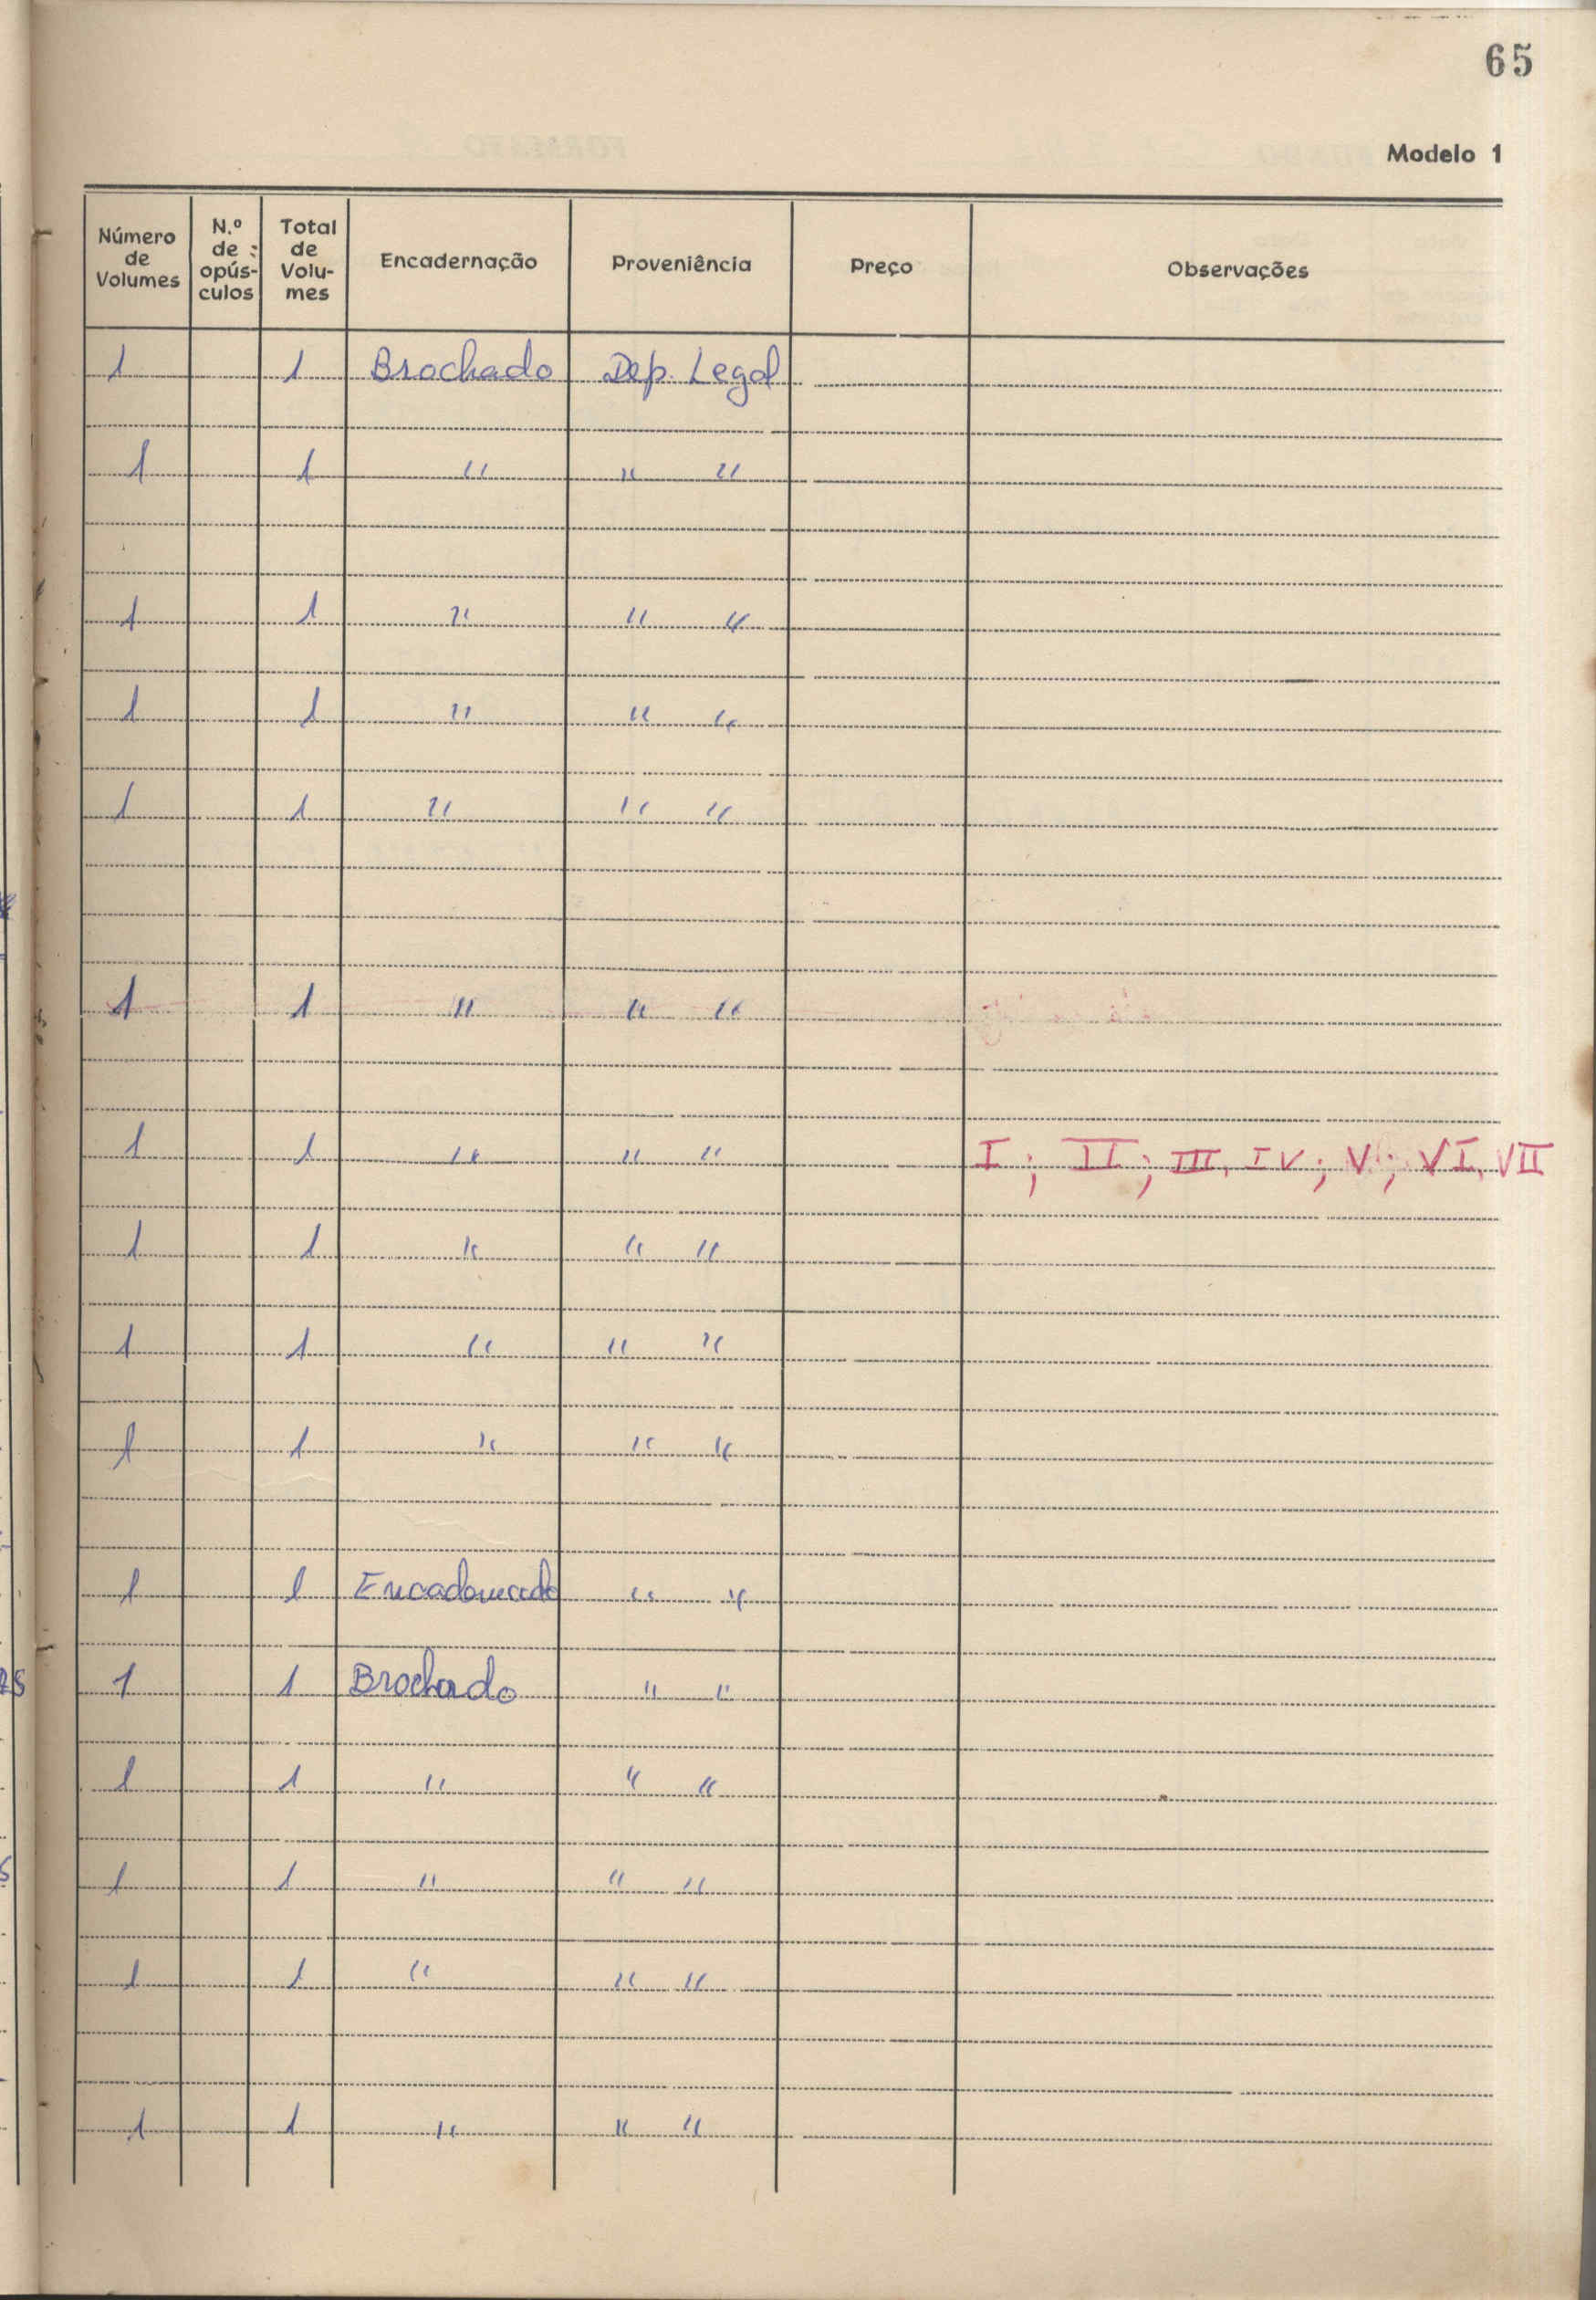 65
Modelo 1
Número de Volumes | N.º de opús-culos | Total de Volu-mes | Encadernação | Proveniência | Preço | Observações
1 1 Brochado Dep. Legal
1 1 " " "
1 1 " " "
1 1 " " "
1 1 " " "
1 1 " " "
1 1 " " " I; II; III, IV; V; VI, VII
1 1 " " "
1 1 " " "
1 1 " " "
1 1 Encadernado " "
1 1 Brochado " "
1 1 " " "
1 1 " " "
1 1 " " "
1 1 " " "